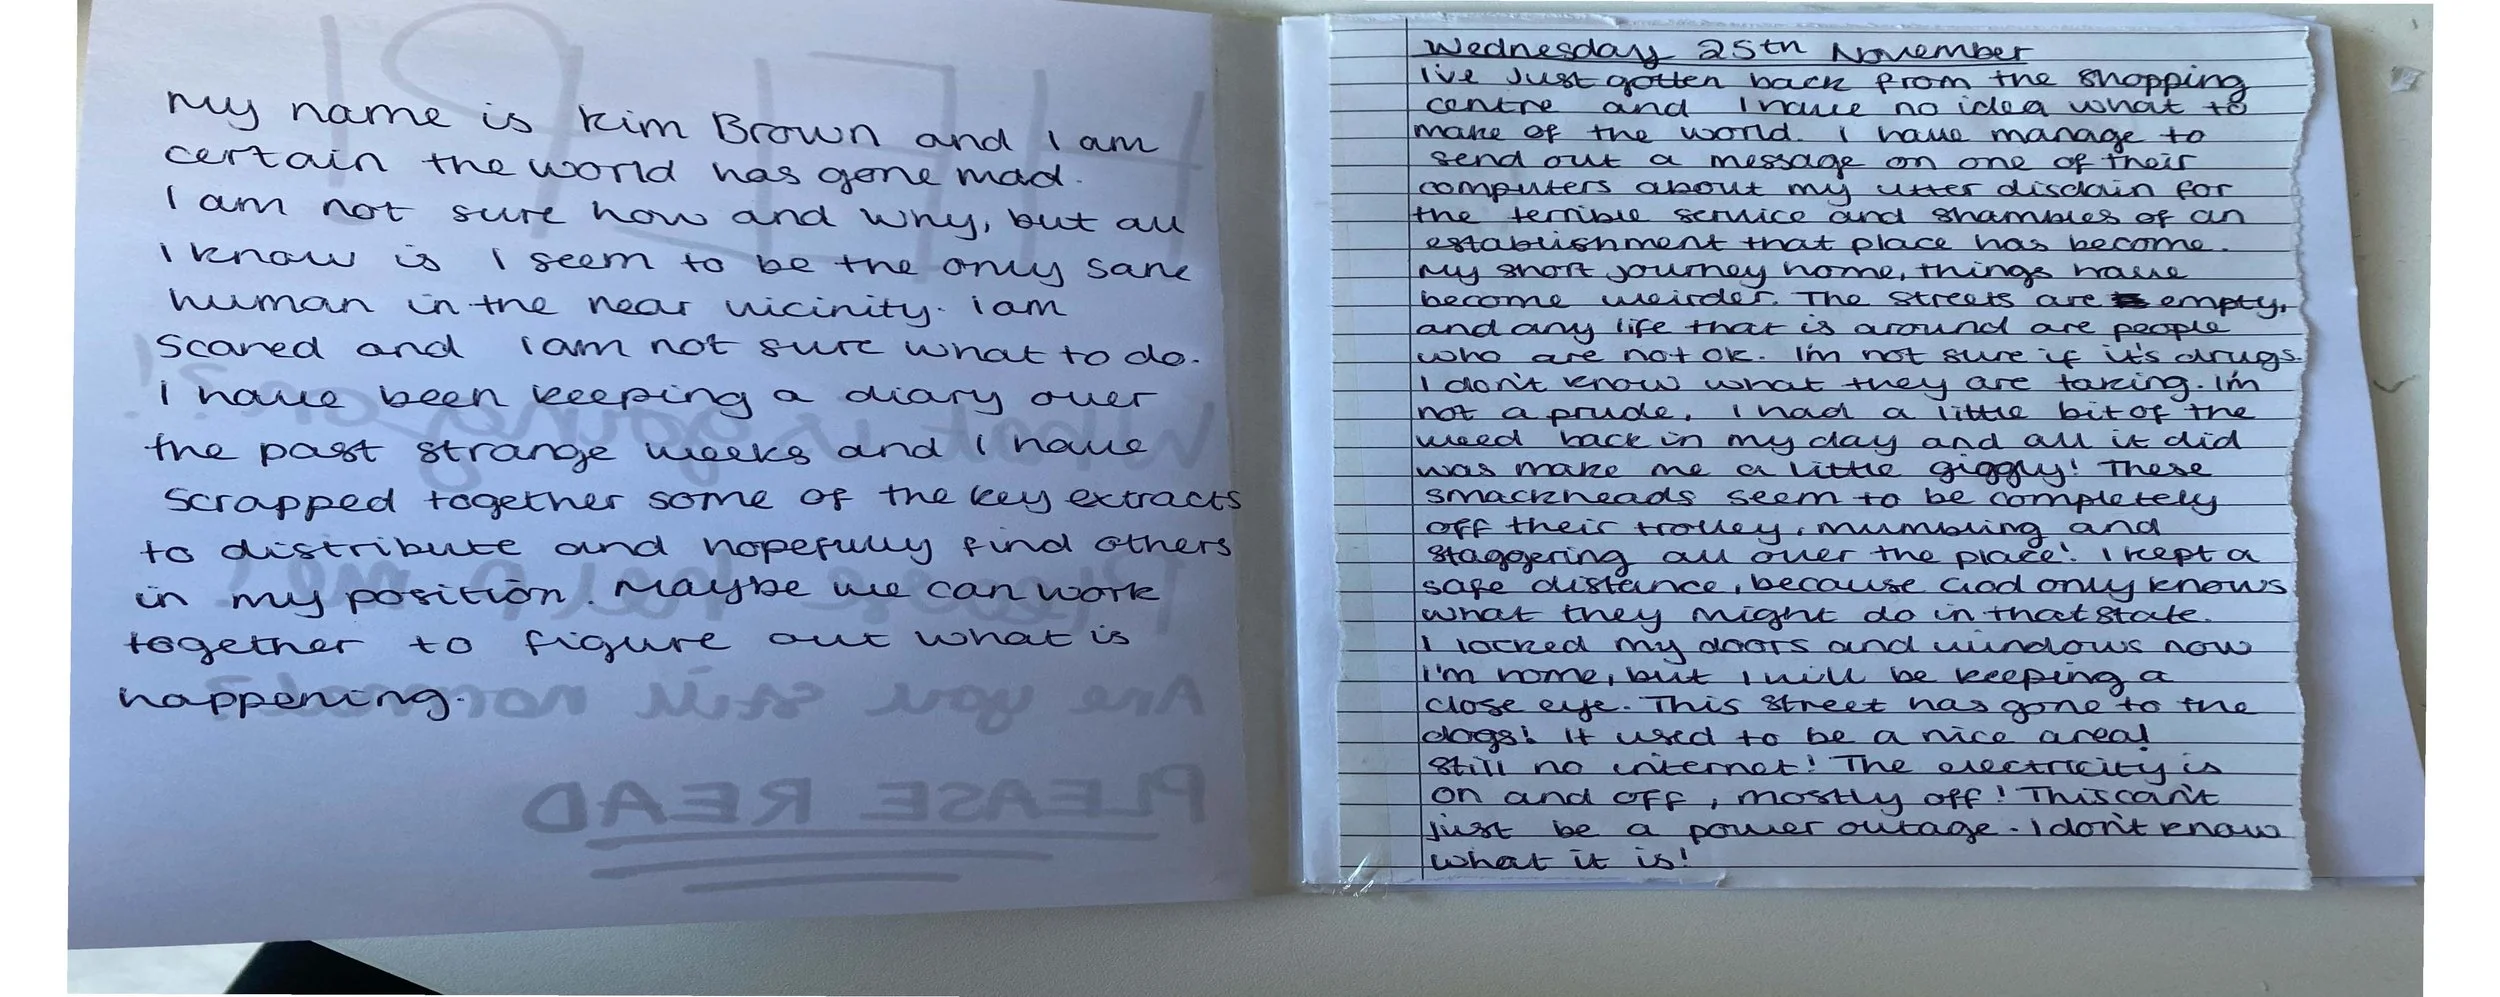 My name is Kim Brown and I am
certain the world has gone mad.
I am not sure how and why, but all
I know is I seem to be the only sane
human in the near vicinity. I am
scared and I am not sure what to do.
I have been keeping a diary over
the past strange weeks and I have
scrapped together some of the key extracts
to distribute and hopefully find others
in my position. Maybe we can work
together to figure out what is
happening.
HELP!
What is going on?!
Please help me!
Are you still normal?
PLEASE READ
Wednesday 25th November
I've just gotten back from the shopping
centre and I have no idea what to
make of the world. I have manage to
send out a message on one of their
computers about my utter disdain for
the terrible service and shambles of an
establishment that place has become.
My short journey home, things have
become weirder. The streets are empty,
and any life that is around are people
who are not ok. I'm not sure if it's drugs.
I don't know what they are taking. I'm
not a prude, I had a little bit of the
weed back in my day and all it did
was make me a little giggly! These
smackheads seem to be completely
off their trolley, mumbling and
staggering all over the place! I kept a
safe distance, because God only knows
what they might do in that state.
I locked my doors and windows now
I'm home, but I will be keeping a
close eye. This street has gone to the
dogs! It used to be a nice area!
Still no internet! The electricity is
on and off, mostly off! This can't
just be a power outage. I don't know
what it is!